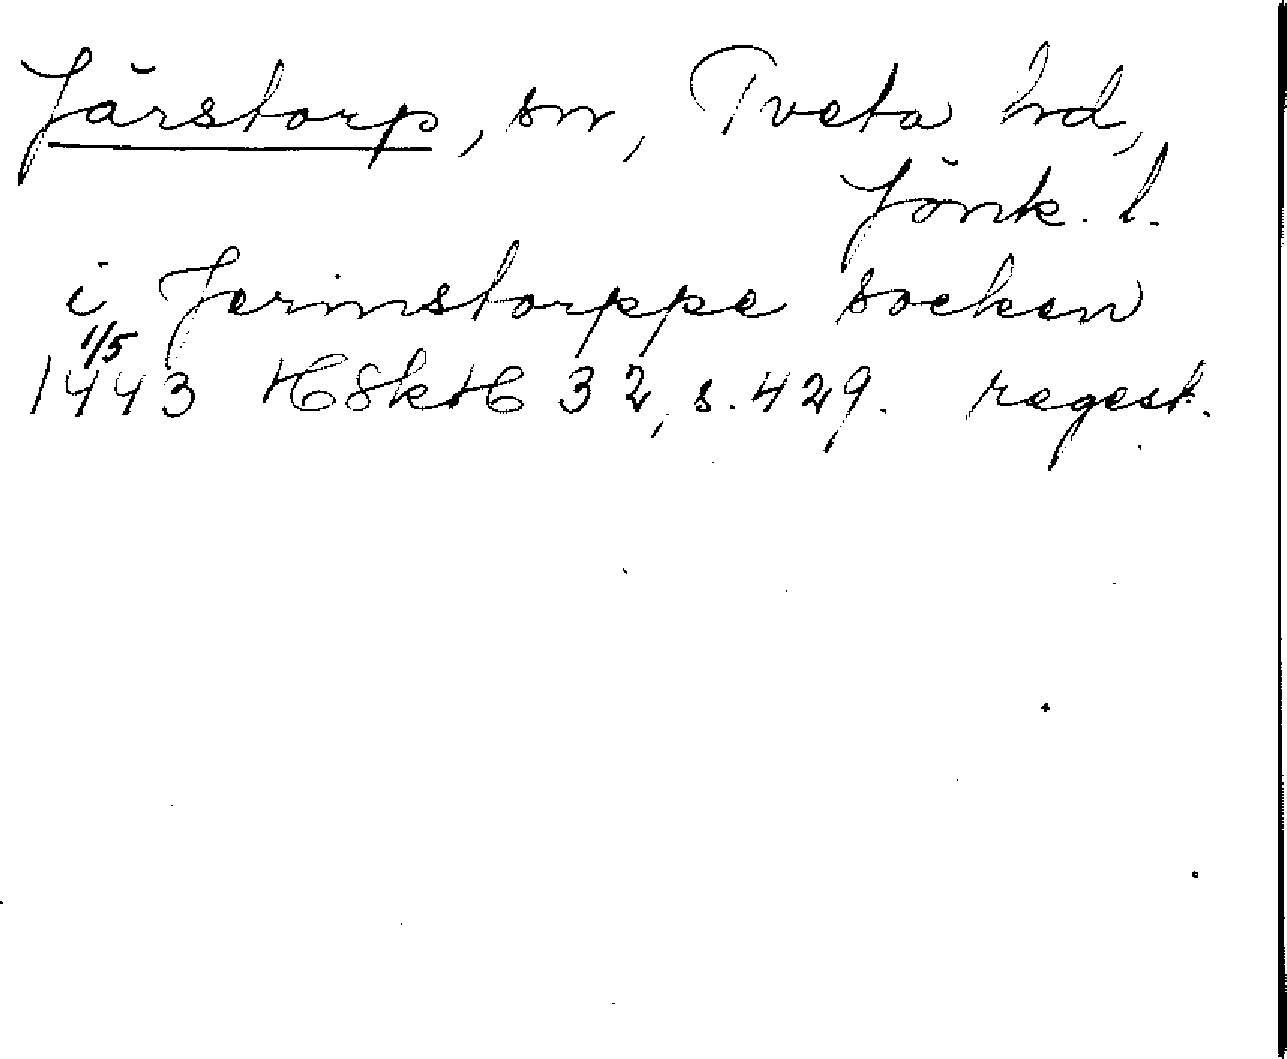 Järstorp, sn, Tveta hd,
Jönk. l.
i Jermstorppe socken
1/5
1443 HSkH 32, s. 429. regest.